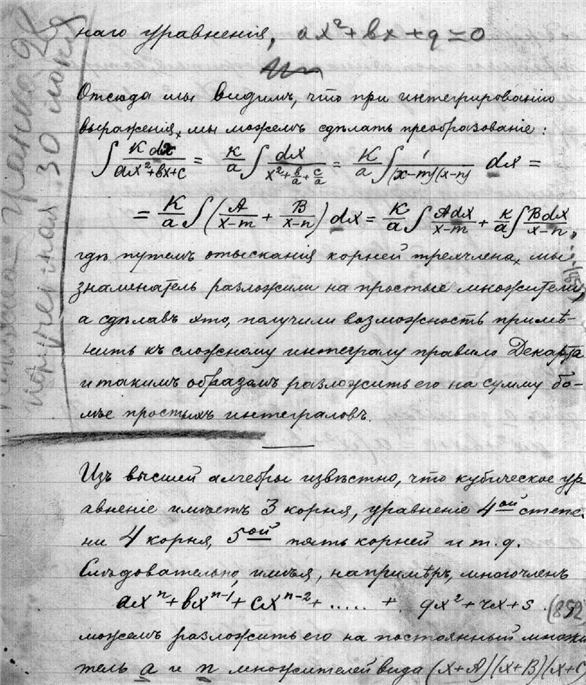 наго уравненія, ax²+bx+q=0
Отсюда мы видимъ, что при интегрированіи
выраженія, мы можемъ сдѣлать преобразованіе:
∫ K dx / (ax²+bx+c) = K/a ∫ dx / (x²+b/a+c/a) = K/a ∫ 1/((x-m)(x-n)) dx =
= K/a ∫ (A/(x-m) + B/(x-n)) dx = K/a ∫ A dx/(x-m) + K/a ∫ B dx/(x-n),
гдѣ путемъ отысканія корней трехчлена, мы
знаменатель разложили на простые множители,
а сдѣлавъ это, получили возможность примѣ-
нить къ сложному интегралу правило Декарта
и такимъ образомъ разложить его на сумму бо-
лѣе простыхъ интеграловъ.
Изъ высшей алгебры извѣстно, что кубическое ур
авненіе имѣетъ 3 корня, уравненіе 4ой степе-
ни 4 корня, 5ой пять корней и т.д.
Слѣдовательно, имѣя, напримѣръ, многочленъ
axⁿ+bxⁿ⁻¹+cxⁿ⁻²+.....+ qx²+rx+s (852)
можемъ разложить его на постоянный множи
тель a и n множителей вида (x+A)(x+B)(x+C
30